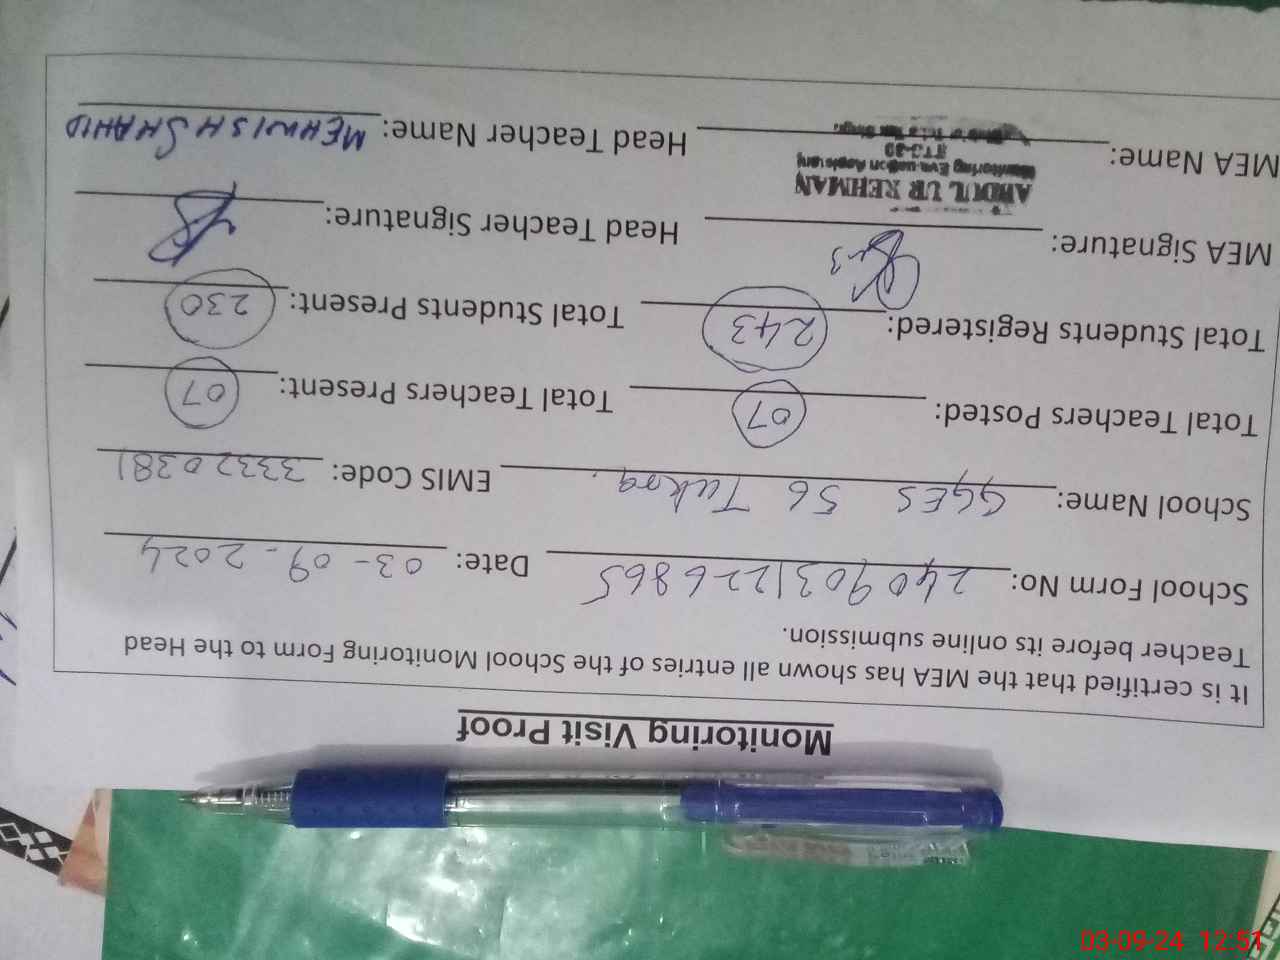 Monitoring Visit Proof
It is certified that the MEA has shown all entries of the School Monitoring Form to the Head
Teacher before its online submission.
School Form No: 2409031226865 Date: 03-09-2024
School Name: GGES 56 Tukra. EMIS Code: 33320381
Total Teachers Posted: 07 Total Teachers Present: 07
Total Students Registered: 243 Total Students Present: 230
MEA Signature: Head Teacher Signature:
ABDUL UR REHMAN
Monitoring
MEA Name: Head Teacher Name: MEHWISH SHAHID
03-09-24 12:51